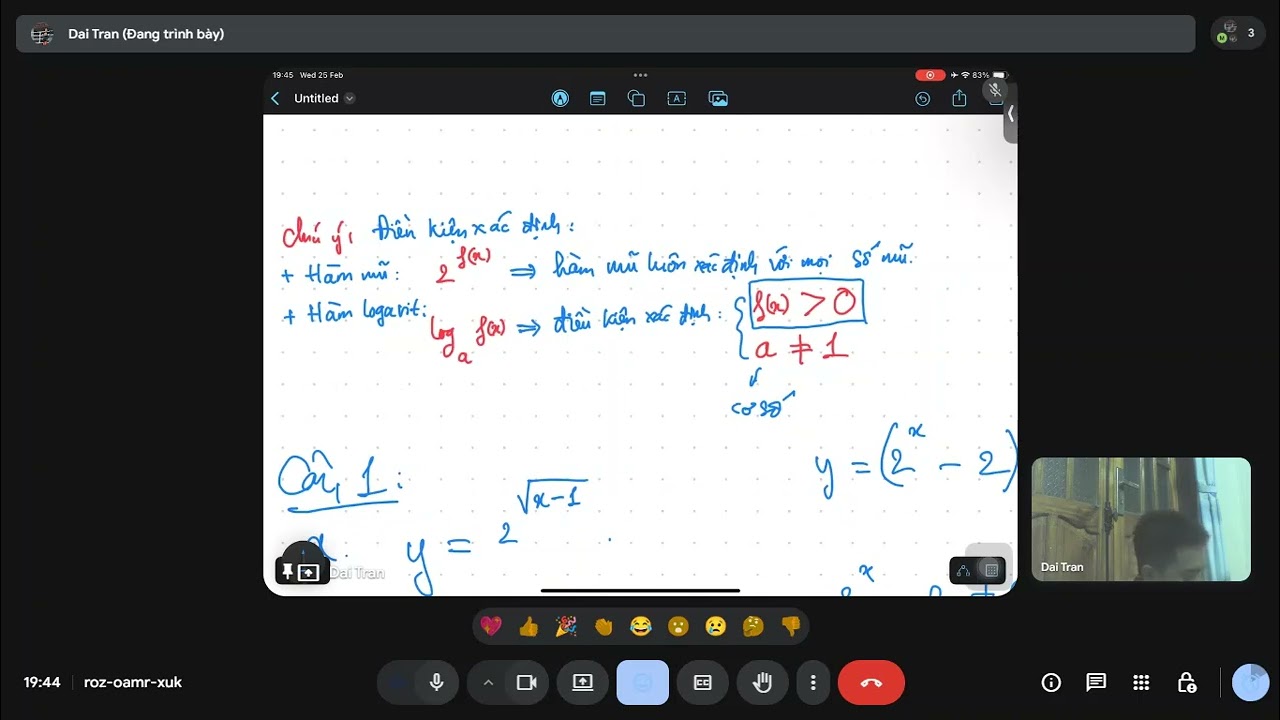 Dai Tran (Đang trình bày)
3
19:45 Wed 25 Feb
83%
Untitled
Chú ý: Điều kiện xác định:
+ Hàm mũ: 2^f(x) ⇒ hàm mũ luôn xác định với mọi số mũ.
+ Hàm logarit: log_a f(x) ⇒ điều kiện xác định: { f(x) > 0
a ≠ 1
cơ số
Câu 1:
y = (2^x - 2)
a. y = 2^√(x-1)
Dai Tran
Dai Tran
19:44 | roz-oamr-xuk